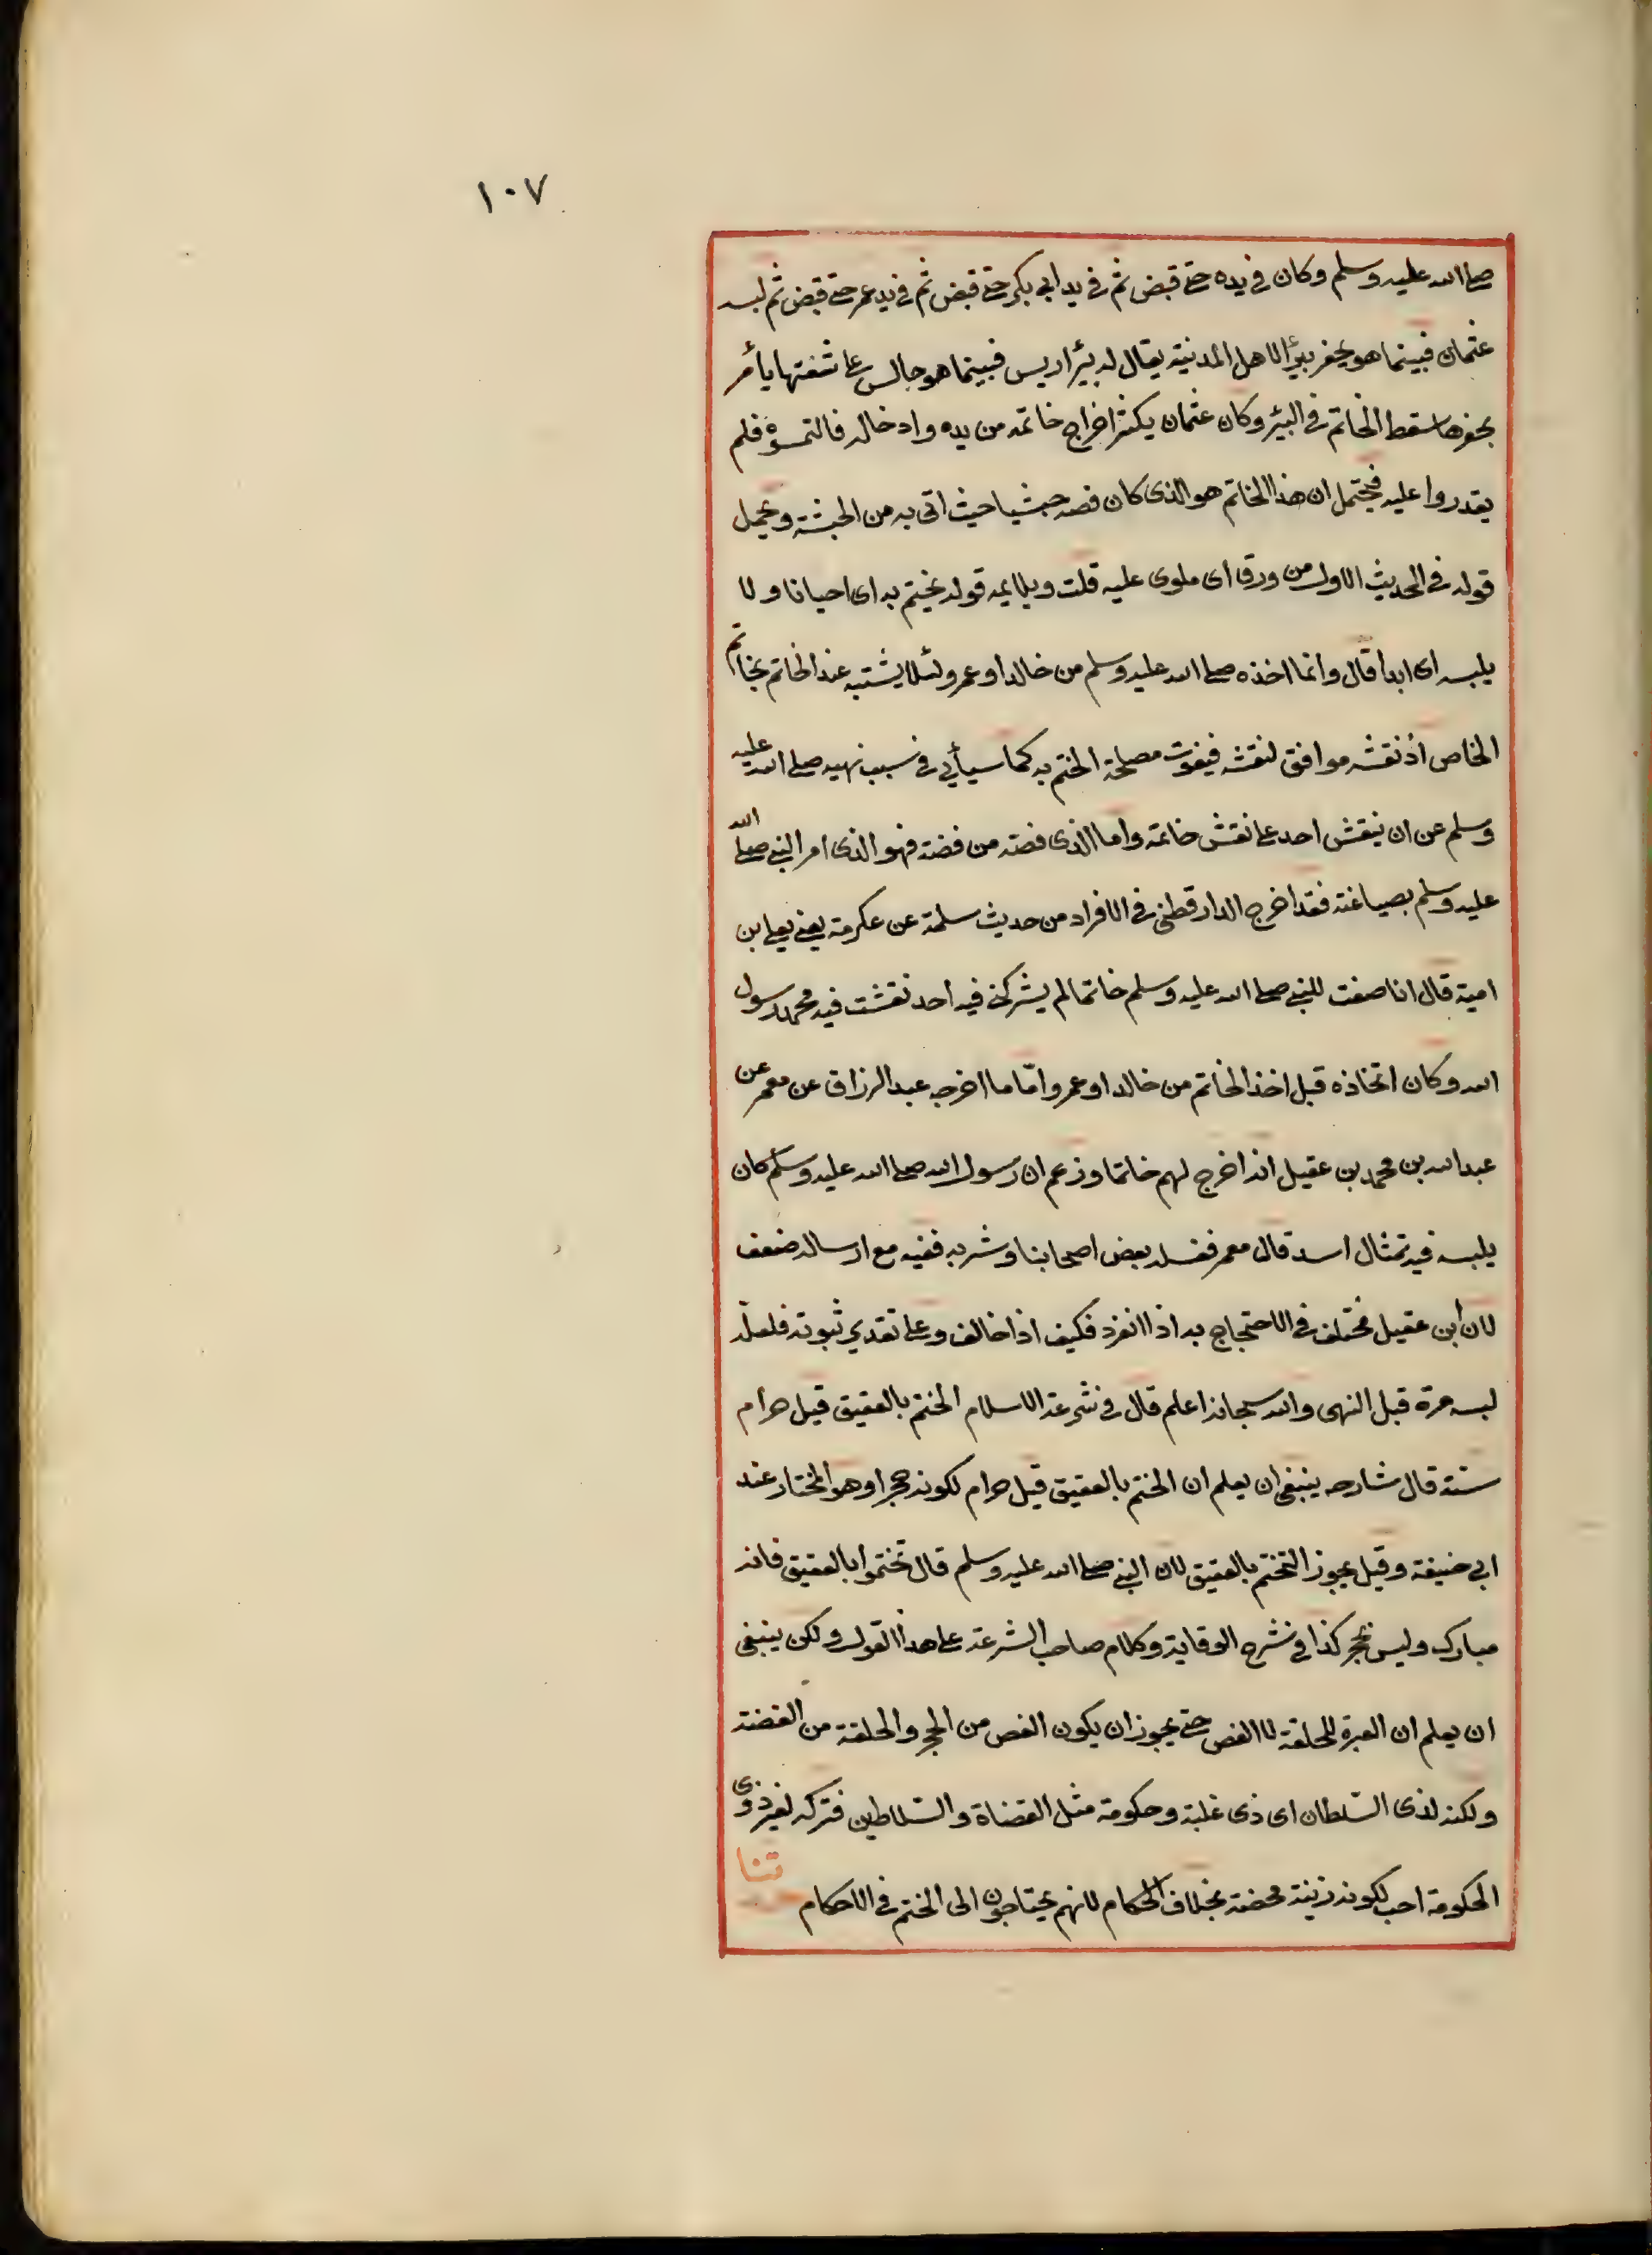 ١٠٧
صلى الله عليه وسلم وكان في يده حتى قبض ثم في يد ابي بكر حتى قبض ثم في يد عمر حتى قبض ثم لبسه
عثمان فبينما هو يحفر بيرًا لاهل المدنية يقال له بئر اريس فبينما هو جالس على شفتها يأمر
بحفرها سقط الخاتم في البئر وكان عثمان يكثر اخراج خاتمه من يده وادخاله فالتمسوه فلم
يقدروا عليه فيحتمل ان هذا الخاتم هو الذى كان فصه حبشيا حيث اتى به من الحبشة ويحمل
قوله في الحديث الاول من ورق اى ملوى عليه قلت ويلايمه قوله يختم به اى احيانا ولا
يلبسه اى ابدا قال وانما اخذه صلى الله عليه وسلم من خالد او عمرو لئلا يشتبه عند الخاتم بخاتم
الخاص اذ نقشه موافق لنقشه فيفوت مصلحة الختم به كما سيأتي في سبب نهيه صلى الله عليه
وسلم عن ان ينقش احد على نقش خاتمه واما الذى فصه من فضة فهو الذى امر النبي صلى الله
عليه وسلم بصياغته فقد اخرج الدارقطنى في الافراد من حديث سلمة عن عكرمة يعني يعلى ابن
امية قال انا صغت للنبي صلى الله عليه وسلم خاتما لم يشركني فيه احد نقشت فيه محمد رسول
الله وكان اتخاذه قبل اخذ الخاتم من خالد او عمرو وامّا ما اخرجه عبد الرزاق عن معمر عن
عبد الله بن محمد بن عقيل انه اخرج لهم خاتما وزعم ان رسول الله صلى الله عليه وسلم كان
يلبسه فيه تمثال اسد قال معمر فغسله بعض اصحابنا وشربه ففيه مع ارساله ضعف
لان ابن عقيل مختلف في الاحتجاج به اذا انفرد فكيف اذا خالف وعلى تقدير ثبوته فلعله
لبسه مرة قبل النهى والله سبحانه اعلم قال في شرعة الاسلام الختم بالعقيق قيل حرام
سنة قال شارحه ينبغى ان يعلم ان الختم بالعقيق قيل حرام لكونه حجرا وهو المختار عند
ابي حنيفة وقيل يجوز التختم بالعقيق لان النبي صلى الله عليه وسلم قال تختموا بالعقيق فانه
مبارك وليس بحجر كذا في شرح الوقاية وكلام صاحب الشرعة على هذا القول ولكن ينبغى
ان يعلم ان العبرة للحلقة لا الفص حتى يجوز ان يكون الفص من الحجر والحلقة من الفضة
ولكنه لذى السّلطان اى ذى غلبة وحكومة مثل القضاة والسّلاطين فتركه لغير ذوى
الحكومة احب لكونه زينة محضة بخلاف الحكام لانهم يحتاجون الى الختم في الاحكام